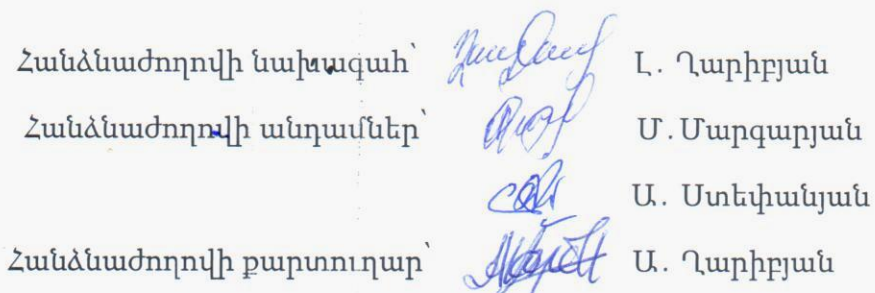 Հանձնաժողովի նախագահ՝ Լ. Ղարիբյան
Հանձնաժողովի անդամներ՝ Մ.Մարգարյան
Ա. Ստեփանյան
Հանձնաժողովի քարտուղար՝ Ա. Ղարիբյան